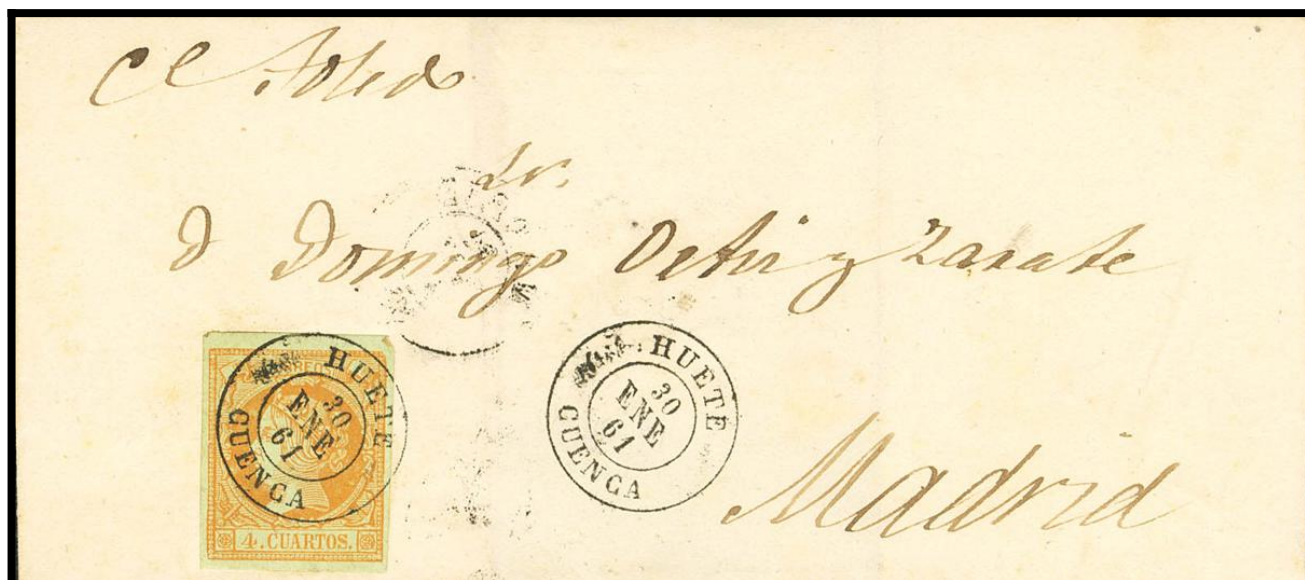 Toledo
Sr.
D Domingo Ortiz y Zarate
HUETE
30
ENE
61
CUENCA
HUETE
30
ENE
61
CUENCA
Madrid
4. CUARTOS.